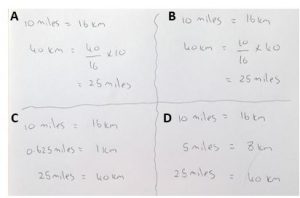 A
10 miles = 16 km
40 km = 40/16 × 10
= 25 miles
B
10 miles = 16 km
40 km = 60/16 × 40
= 25 miles
C
10 miles = 16 km
0.625 miles = 1 km
25 miles = 40 km
D
10 miles = 16 km
5 miles = 8 km
25 miles = 40 km